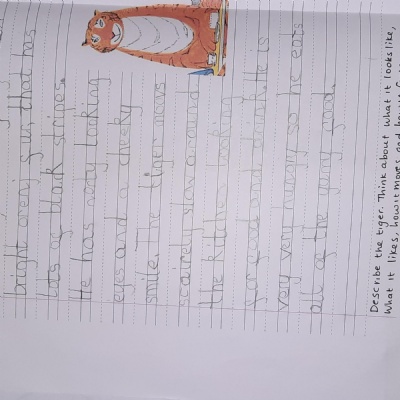 bright oreng that has
Lots of blak stripes.
He has looking
eyes and a cheeky
smile. The tiger movs
slow around
the kitchen looking
for food and drink. He is
very very hungry so he eats
all of the yumy food.
Describe the tiger. Think about what it looks like,
what it likes, how it moves and how